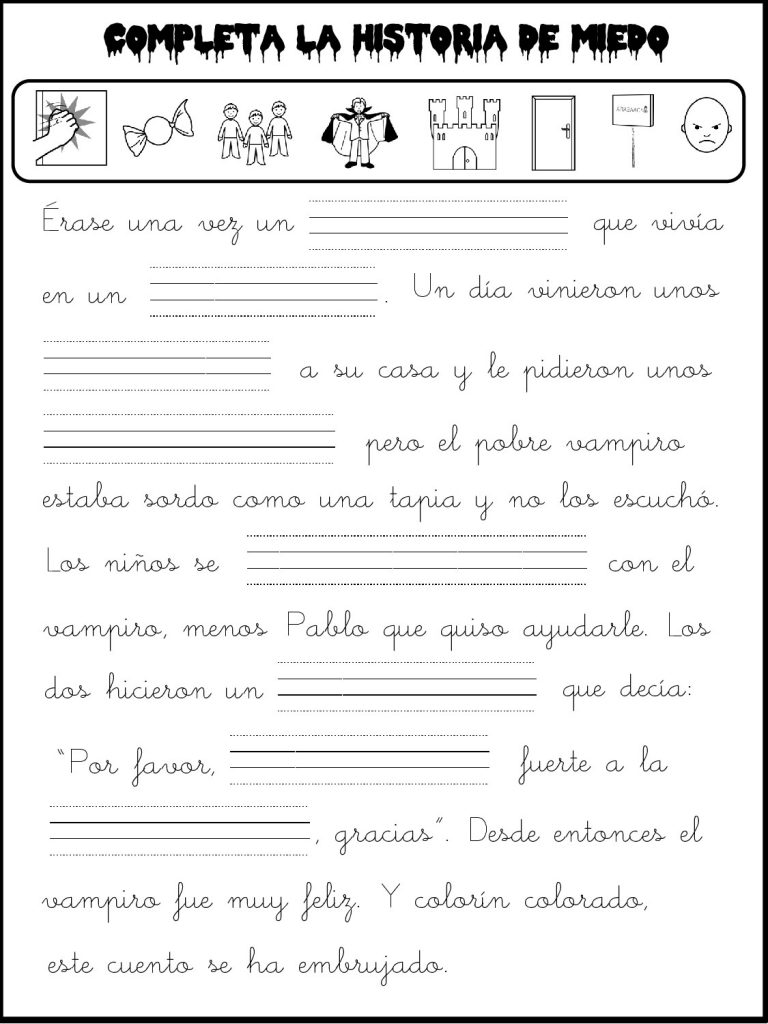 COMPLETA LA HISTORIA DE MIEDO
Érase una vez un que vivía
en un . Un día vinieron unos
a su casa y le pidieron unos
pero el pobre vampiro
estaba sordo como una tapia y no los escuchó.
Los niños se con el
vampiro, menos Pablo que quiso ayudarle. Los
dos hicieron un que decía:
"Por favor, fuerte a la
, gracias". Desde entonces el
vampiro fue muy feliz. Y colorín colorado,
este cuento se ha embrujado.